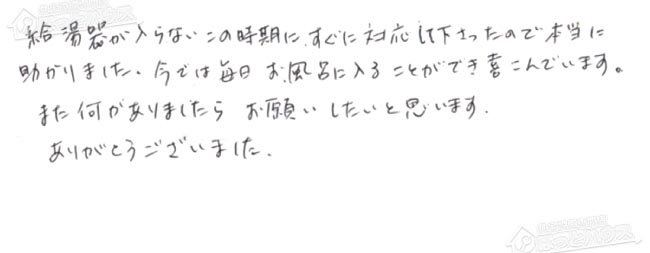 給湯器が入らないこの時期に、すぐに対応して下さったので本当に
助かりました。今では毎日お風呂に入ることができ喜こんでいます。
また何がありましたらお願いしたいと思います.
ありがとうございました.